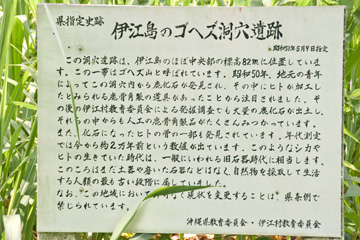 県指定史跡
伊江島のゴヘズ洞穴遺跡
昭和52年5月9日指定
この洞穴遺跡は、伊江島のほぼ中央部の標高82mに位置していま
す。この一帯はゴヘズ山と呼ばれています。昭和50年、地元の青年
によってこの洞穴内から鹿化石が発見され、その中にヒトが加工し
たとみられる鹿骨角製の道具があったことから注目されました。そ
の後の伊江村教育委員会による発掘調査でも大量の鹿化石が出土し、
それらの中からも人工の鹿骨角製品がたくさんみつかっています。
また、化石になったヒトの骨の一部も発見されています。年代測定
では今から約2万年前という数値が出ています。このようなシカや
ヒトの生きていた時代は、一般にいわれる旧石器時代に相当します。
このころはまだ土器や磨いた石器などはなく自然物を採取して生活
する人類の最も古い段階に属していました。
なお、この地域において
現状を変更することは、県条例で
禁じられています。
沖縄県教育委員会・伊江村教育委員会